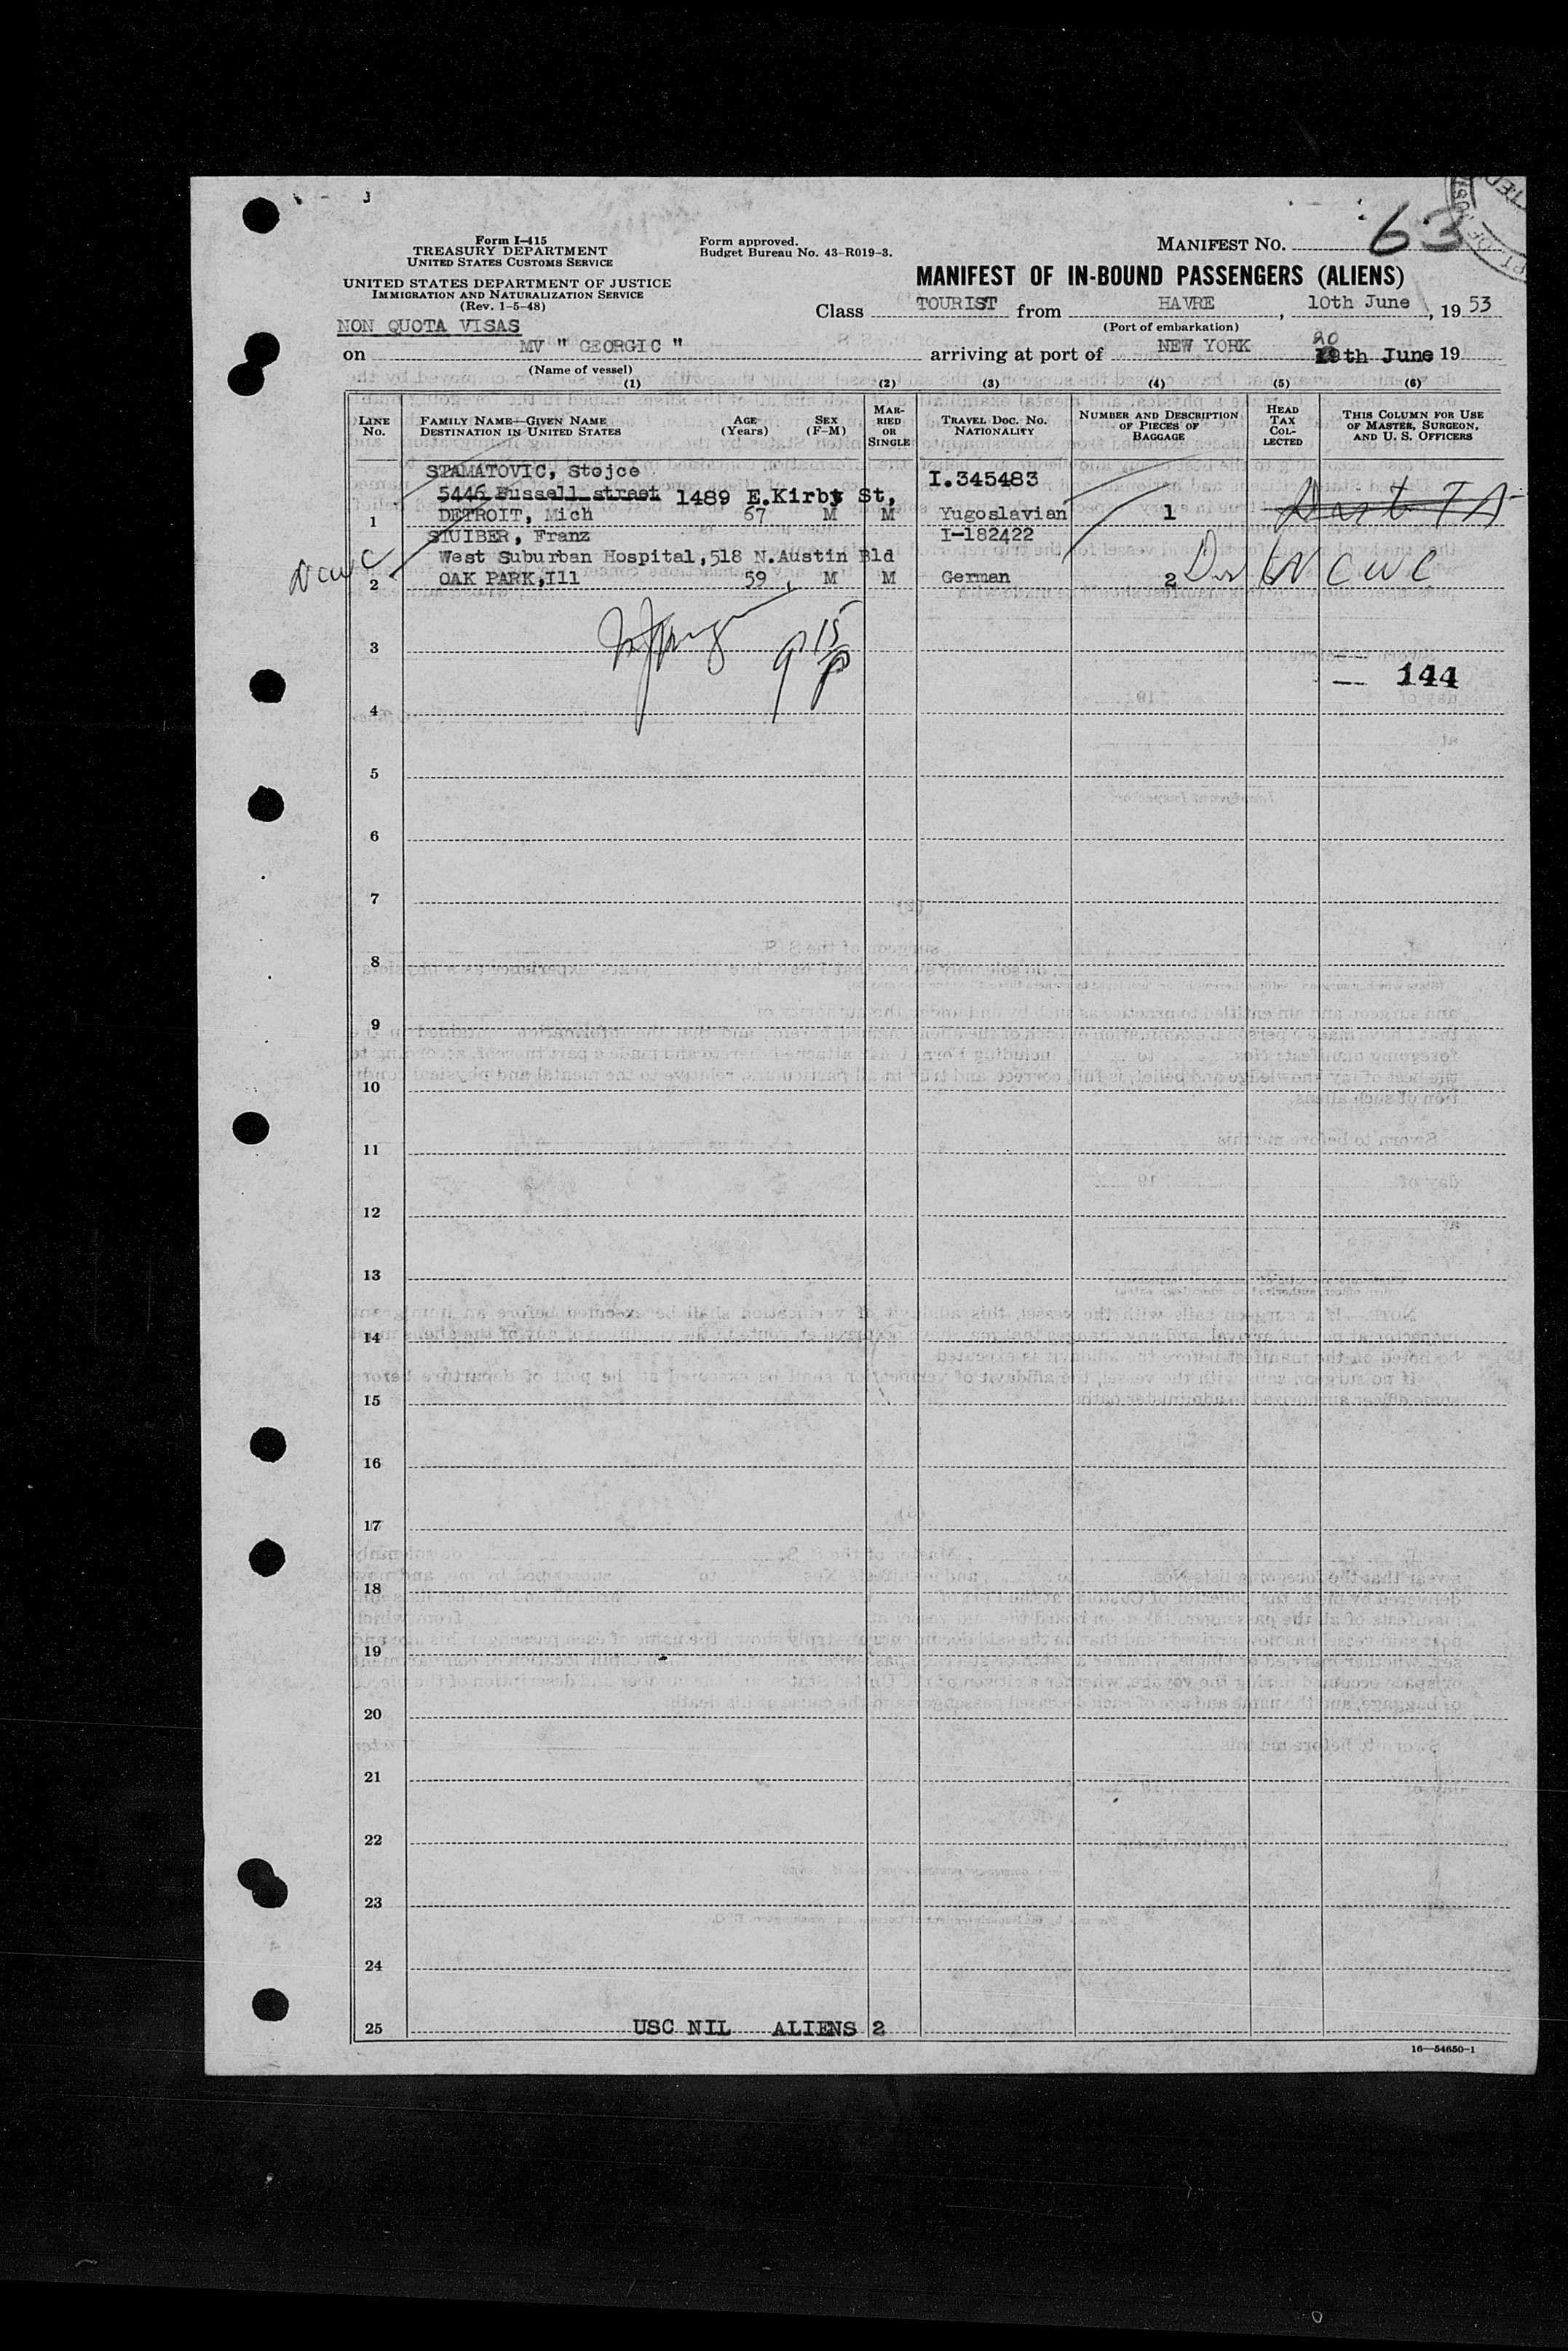 Form I-415
TREASURY DEPARTMENT
UNITED STATES CUSTOMS SERVICE
UNITED STATES DEPARTMENT OF JUSTICE
IMMIGRATION AND NATURALIZATION SERVICE
(Rev. 1-5-48)
Form approved.
Budget Bureau No. 43-R019-3.
MANIFEST NO. 63
MANIFEST OF IN-BOUND PASSENGERS (ALIENS)
Class TOURIST from HAVRE, 10th June, 19 53
(Port of embarkation)
NON QUOTA VISAS
on MV " GEORGIC " arriving at port of NEW YORK 20 th June 19
(Name of vessel)
(1) (2) (3) (4) (5) (6)
LINE NO.
FAMILY NAME—GIVEN NAME
DESTINATION IN UNITED STATES
AGE (Years)
SEX (F-M)
MARRIED OR SINGLE
TRAVEL DOC. NO.
NATIONALITY
NUMBER AND DESCRIPTION OF PIECES OF BAGGAGE
HEAD TAX COLLECTED
THIS COLUMN FOR USE OF MASTER, SURGEON, AND U. S. OFFICERS
STAMATOVIC, Stojce I.345483
5446 Russell street 1489 E.Kirby St,
1 DETROIT, Mich 67 M M Yugoslavian 1
STUIBER, Franz I-182422
West Suburban Hospital,518 N.Austin Bld
NCWC 2 OAK PARK,Ill 59 M M German 2 NCWC
3
9 15 p
144
4
5
6
7
8
9
10
11
12
13
14
15
16
17
18
19
20
21
22
23
24
25 USC NIL ALIENS 2
16—54650-1